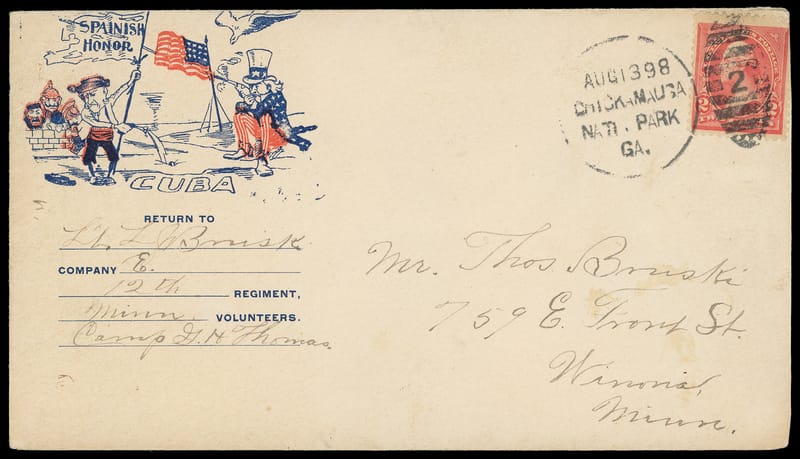 SPAINISH
HONOR
CUBA
RETURN TO
Lt. L Bruski
COMPANY E.
12th REGIMENT,
Minn. VOLUNTEERS.
Camp G. H Thomas.
AUG 13 98
CHICKAMAUGA
NAT'L. PARK
GA.
2
Mr. Thos. Bruski
759 E. Front St.
Winona,
Minn.